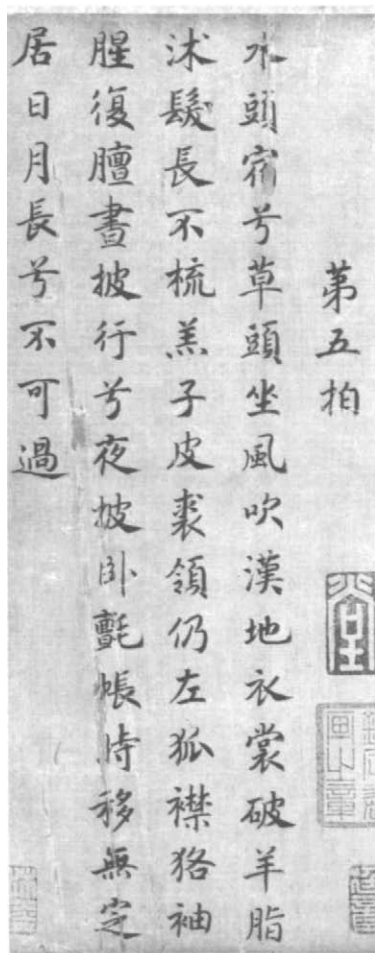 第五拍
水頭宿兮草頭坐風吹漢地衣裳破羊脂
沐髮長不梳羔子皮裘領仍左狐襟狢袖
腥復膻晝披行兮夜披卧氈帳時移無定
居日月長兮不可過